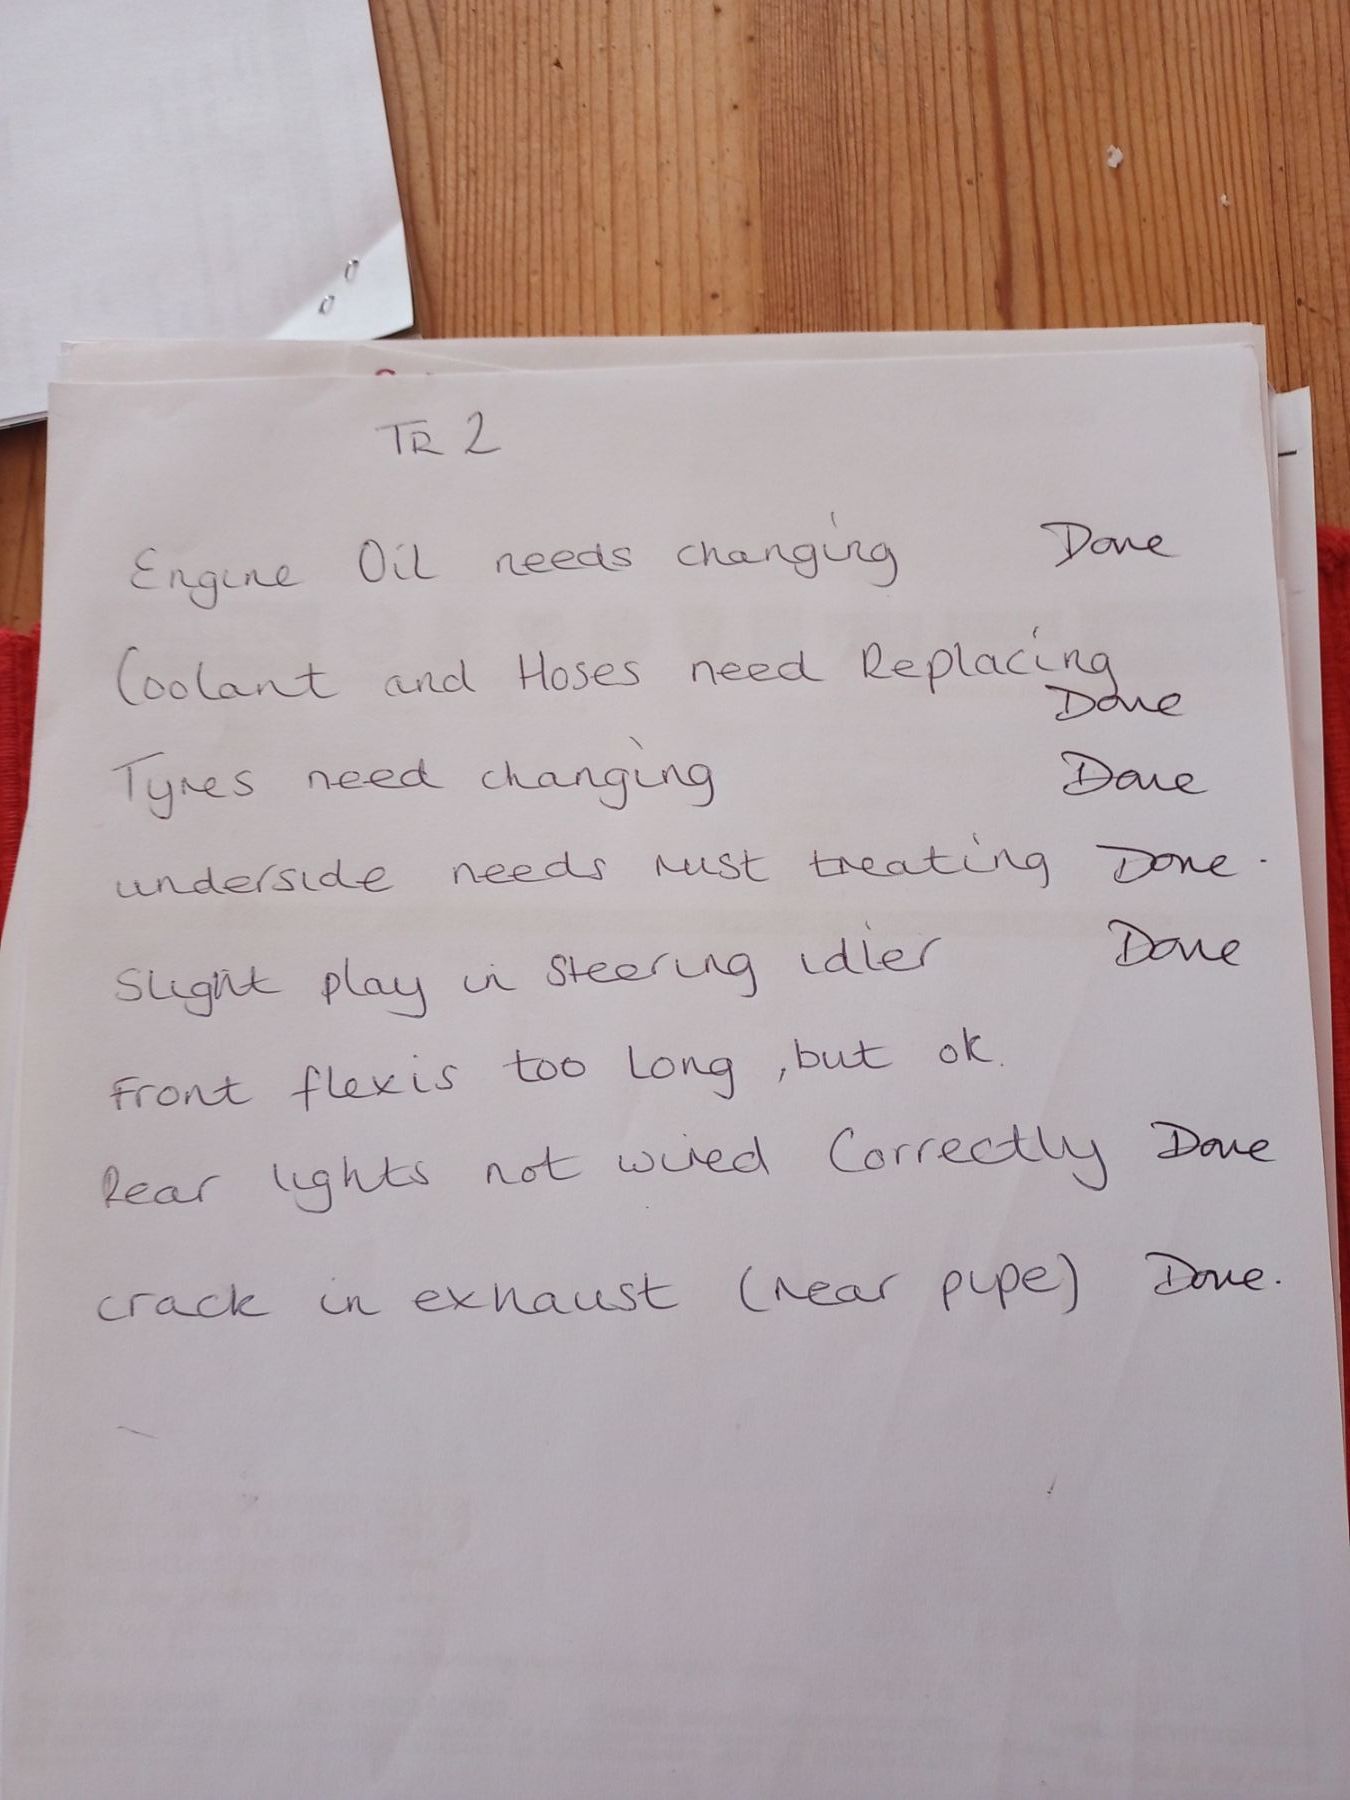 TR 2
Engine Oil needs changing Done
Coolant and Hoses need Replacing
Done
Tyres need changing Done
underside needs rust treating Done.
Slight play in steering idler Done
Front flexis too long, but ok.
Rear lights not wired Correctly Done
crack in exhaust (rear pipe) Done.